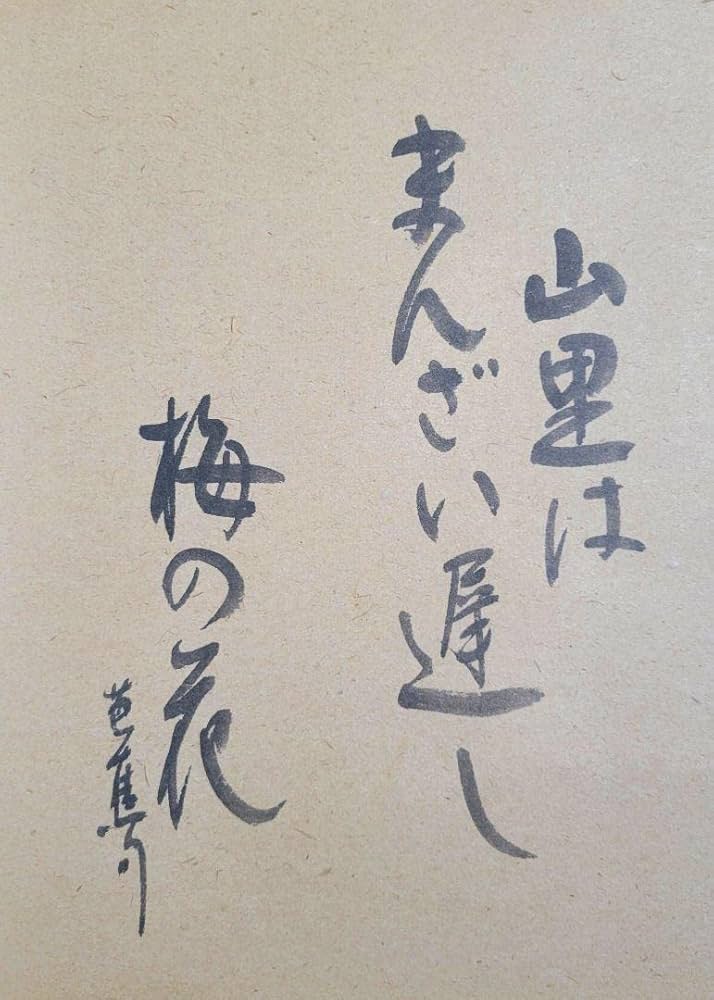 山里は
まんざい遅し
梅の花
芭蕉句